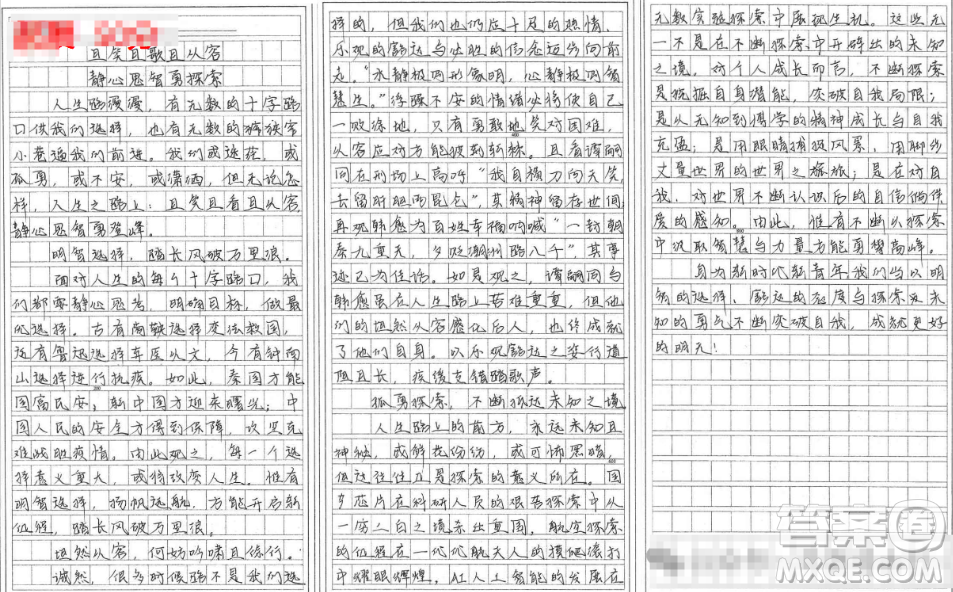 且笑且歌且从容
静心思智勇探索
人生路漫漫，有无数的十字路
口供我们选择，也有无数的狭长
小巷逼我们前进。我们或迷茫，或
孤勇，或不安，或潇洒，但无论怎
样，人生之路上：且笑且看且从容，
静心思智勇登峰。
明智选择，踏长风破万里浪。
面对人生的每个十字路口，我
们都要静心思考，明确目标，做最
的选择。古有商鞅选择变法救国，
近有鲁迅选择弃医从文，今有钟南
山选择逆行抗疫。如此，秦国方能
国富民安；新中国方迎来曙光；中
国人民的安全方得到保障，攻坚克
难战胜疫情。由此观之，每一个选
择意义重大，或将改变人生。惟有
明智选择，扬帆远航，方能开启新
征程，踏长风破万里浪。
坦然从容，何妨吟啸且徐行。
诚然，很多时候路不是我们选
择的，但我们也仍应十足的热情、
乐观的豁达与必胜的信念迈步向前
走。“水静极则形象明，心静极则智
慧生。”浮躁不安的情绪必将使自己
一败涂地，只有勇敢地笑对困难，
从容应对方能披荆斩棘。且看谭嗣
同在刑场上高呼“我自横刀向天笑，
去留肝胆两昆仑”，其精神留在世间，
再观韩愈为百姓幸福呐喊“一封朝
奏九重天，夕贬潮州路八千”其事
迹已为佳话。如是观之，谭嗣同与
韩愈虽在人生路上苦难重重，但他
们的坦然从容感化后人，也终成就
了他们自身。以乐观豁达之姿行道
阻且长，疫缓支错踏歌声。
孤勇探索，不断抵达未知之境
人生路上的前方，永远未知且
神秘，或鲜花纷纷，或可怖黑暗，
但这往往正是探索的意义所在。国
产芯片在科研人员的艰苦探索中从
一穷二白之境杀出重围，航空探索
的征程在一代代航天人的摸爬滚打
中耀眼辉煌，红人工智能的发展在
无数实验探索中展抓生机。这些无
一不是在不断探索中开辟出的未知
之境。对个人成长而言，不断探索
是挖掘自身潜能，突破自我局限；
是从无知到博学的精神成长与自我
充盈；是用眼睛捕捉风景、用脚步
丈量世界的世界之旅；是在对自
我、对世界不断认识后的自信
度的感知。由此，惟有不断从探索
中汲取智慧与力量方能勇攀高峰。
身为新时代新青年我们当以明
智的选择、豁达的态度与探索无未
知的勇气不断突破自我，成就更好
的明天！
答案圈
MXQE.COM